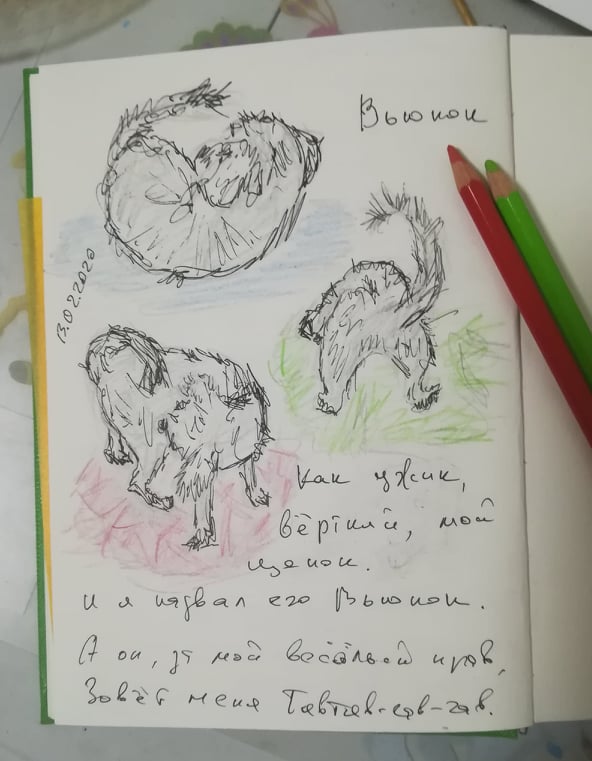 Вьюнок
13.02.2020
Как ужик,
вёрткий, мой
щенок.
И я назвал его Вьюнок.
А он, за мой весёлый нрав,
Зовёт меня Гавгав-гав-гав.